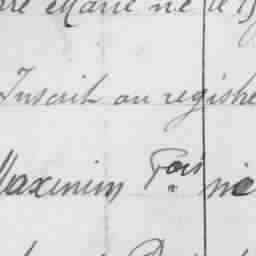 Marie né le 15
Inscrit au registre
Maximin Fois né